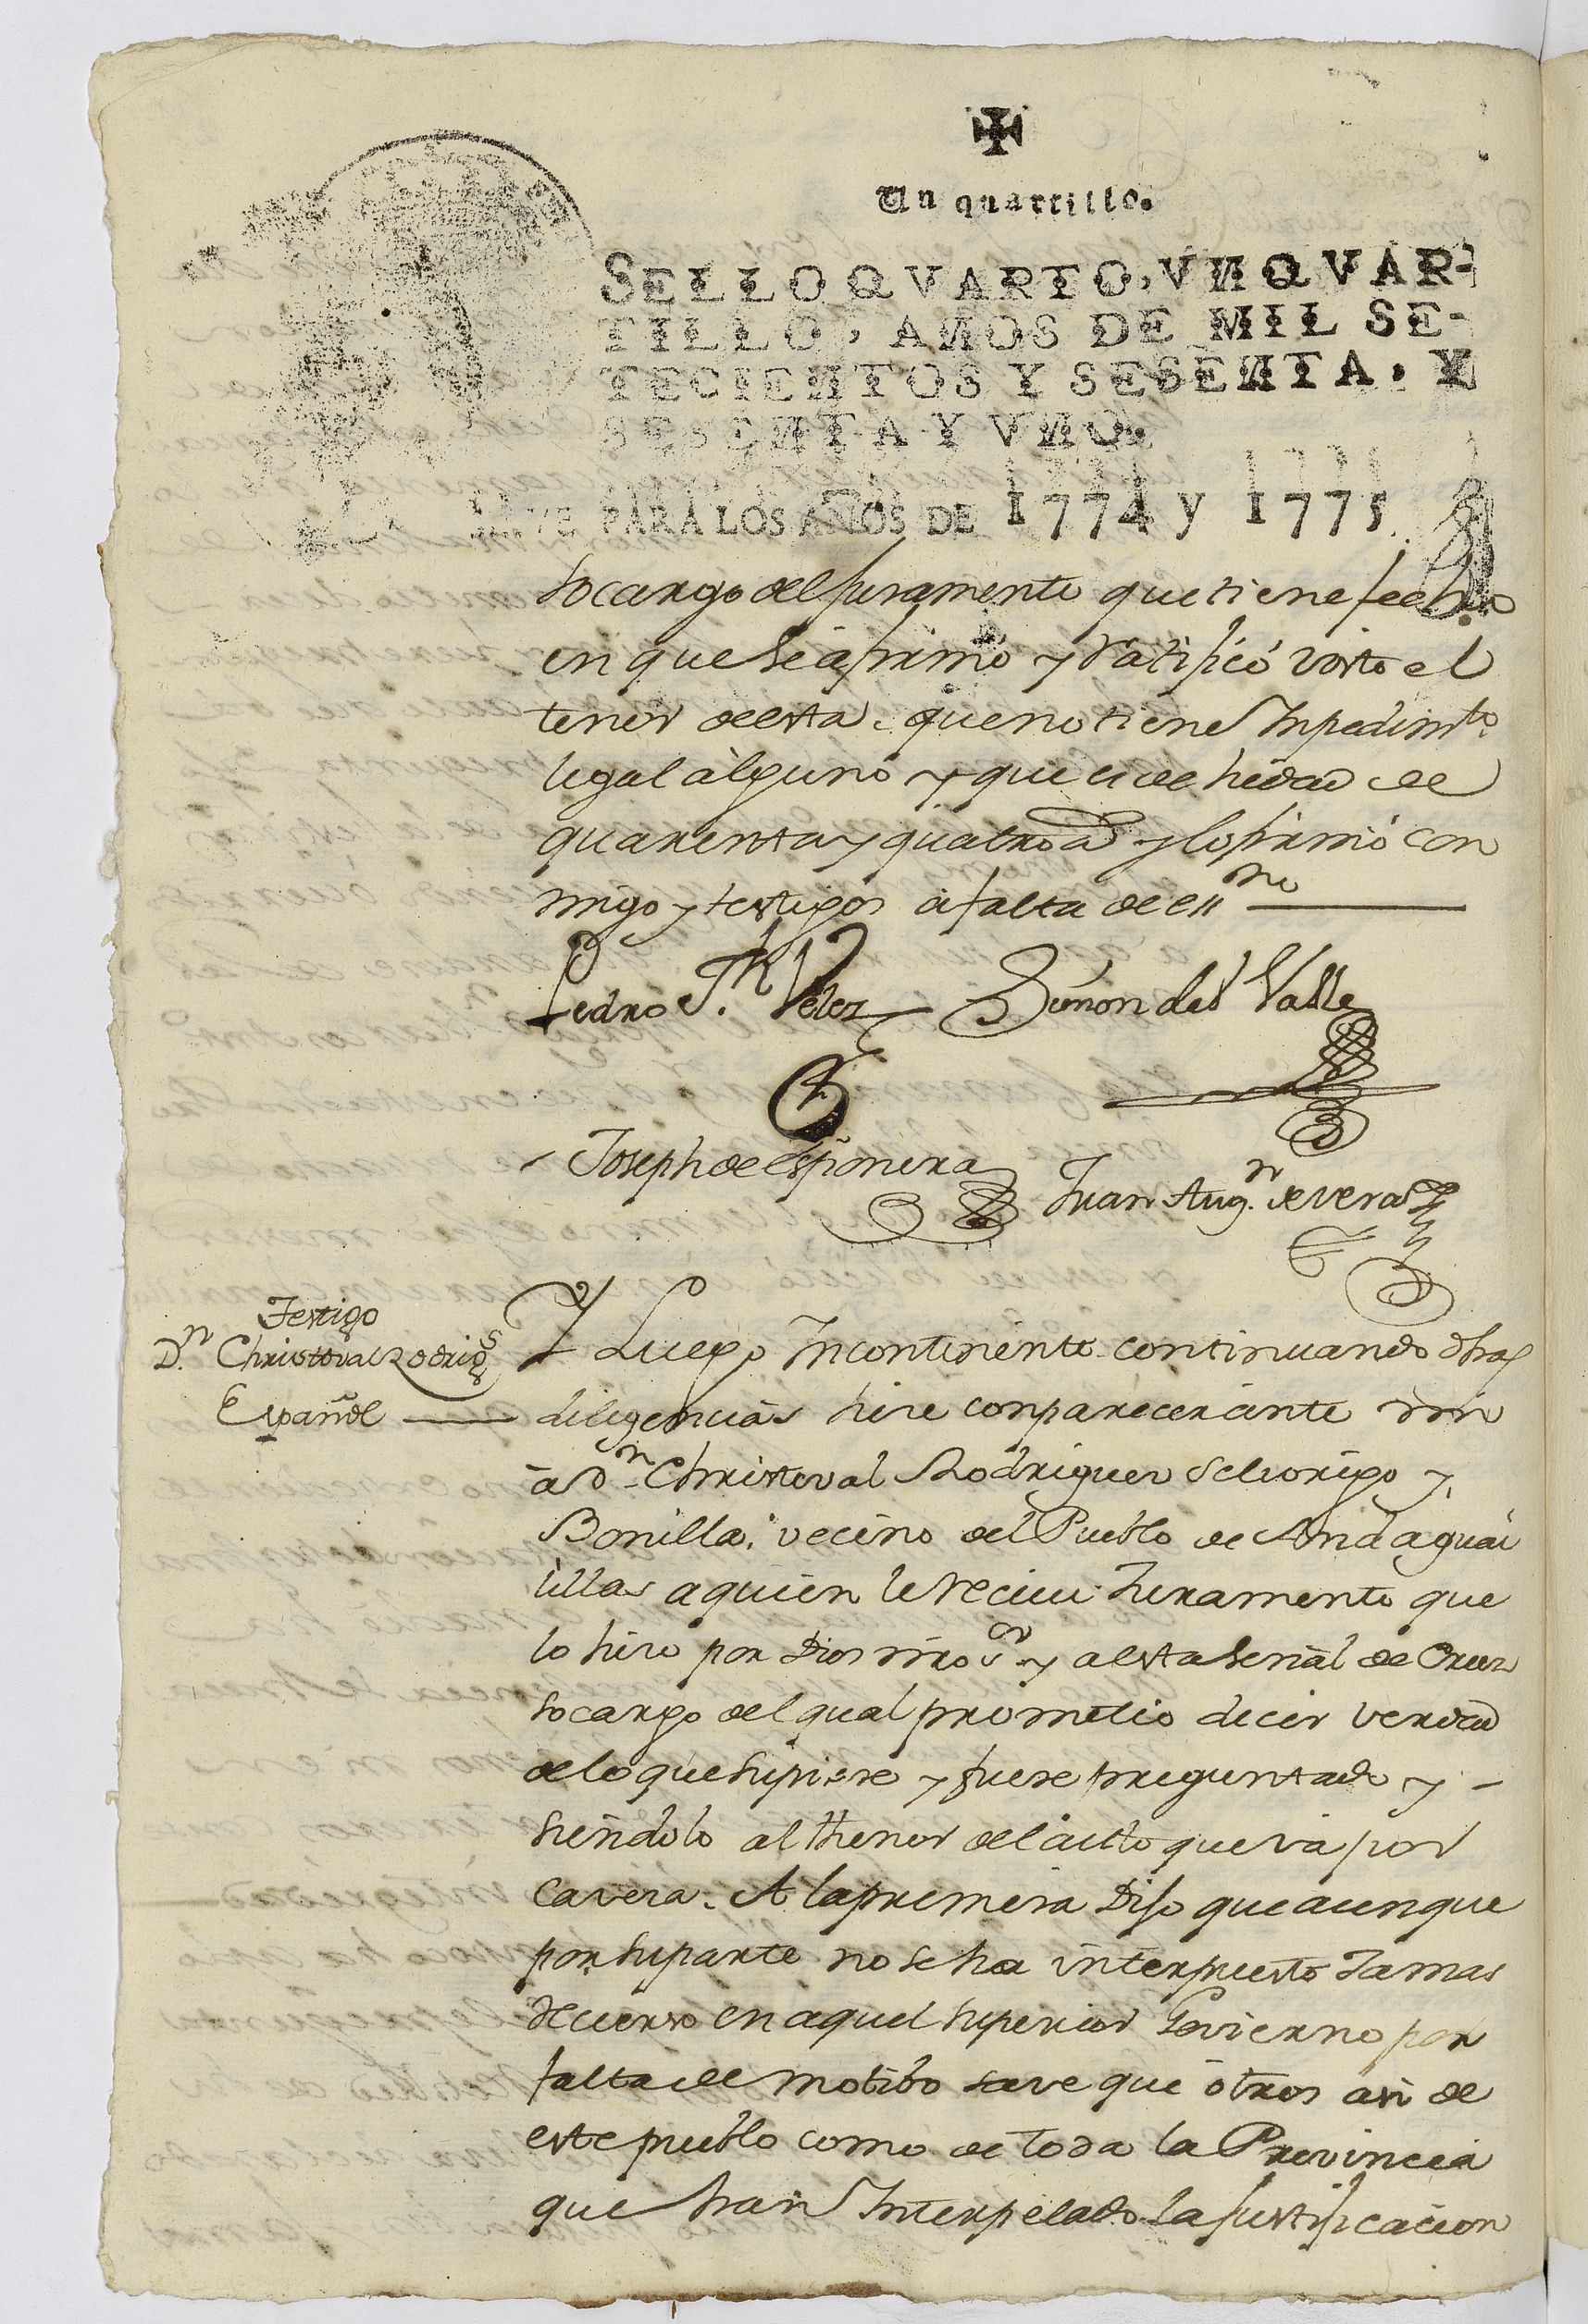 Un quartillo.
SELLO QVARTO, VN QVAR-
TILLO, AÑOS DE MIL SE-
TECIENTOS Y SESENTA, Y
SESENTA Y VNO.
PARA LOS AÑOS DE 1774 y 1775
so cargo del juramento que tiene fecho
en que se afirmó y ratificó visto el
tenor de esta, que no tiene Inpedimto
legal alguno y que es de hedad de
quarenta y quatro as y lo firmó con
migo y testigos a falta de essno
Pedro Jph Velez Simon del Valle
Joseph de Espinera Juan Augn. de Veras
Testigo
Dn. Christoval Rodrigs
Español
Y Luego Incontinente continuando dhas
diligencias hise conparecer ante mi
a Dn Christoval Rodriguez Seliorigo y
Bonilla, vecino del Pueblo de Andaguai
lillas a quien le reciui Juramento que
lo hiso por Dios nro Sor y a esta señal de Cruz
so cargo del qual prometio decir verdad
de lo que supiere y fuere preguntado y -
siendolo al thenor del autto que va por
cavesa. A la primera Dijo que aunque
por su parte no se ha interpuesto Jamas
recurso en aquel superior Govierno por
falta de motibo save que otros asi de
este pueblo como de toda la Provincia
que han Interpelado la justificacion